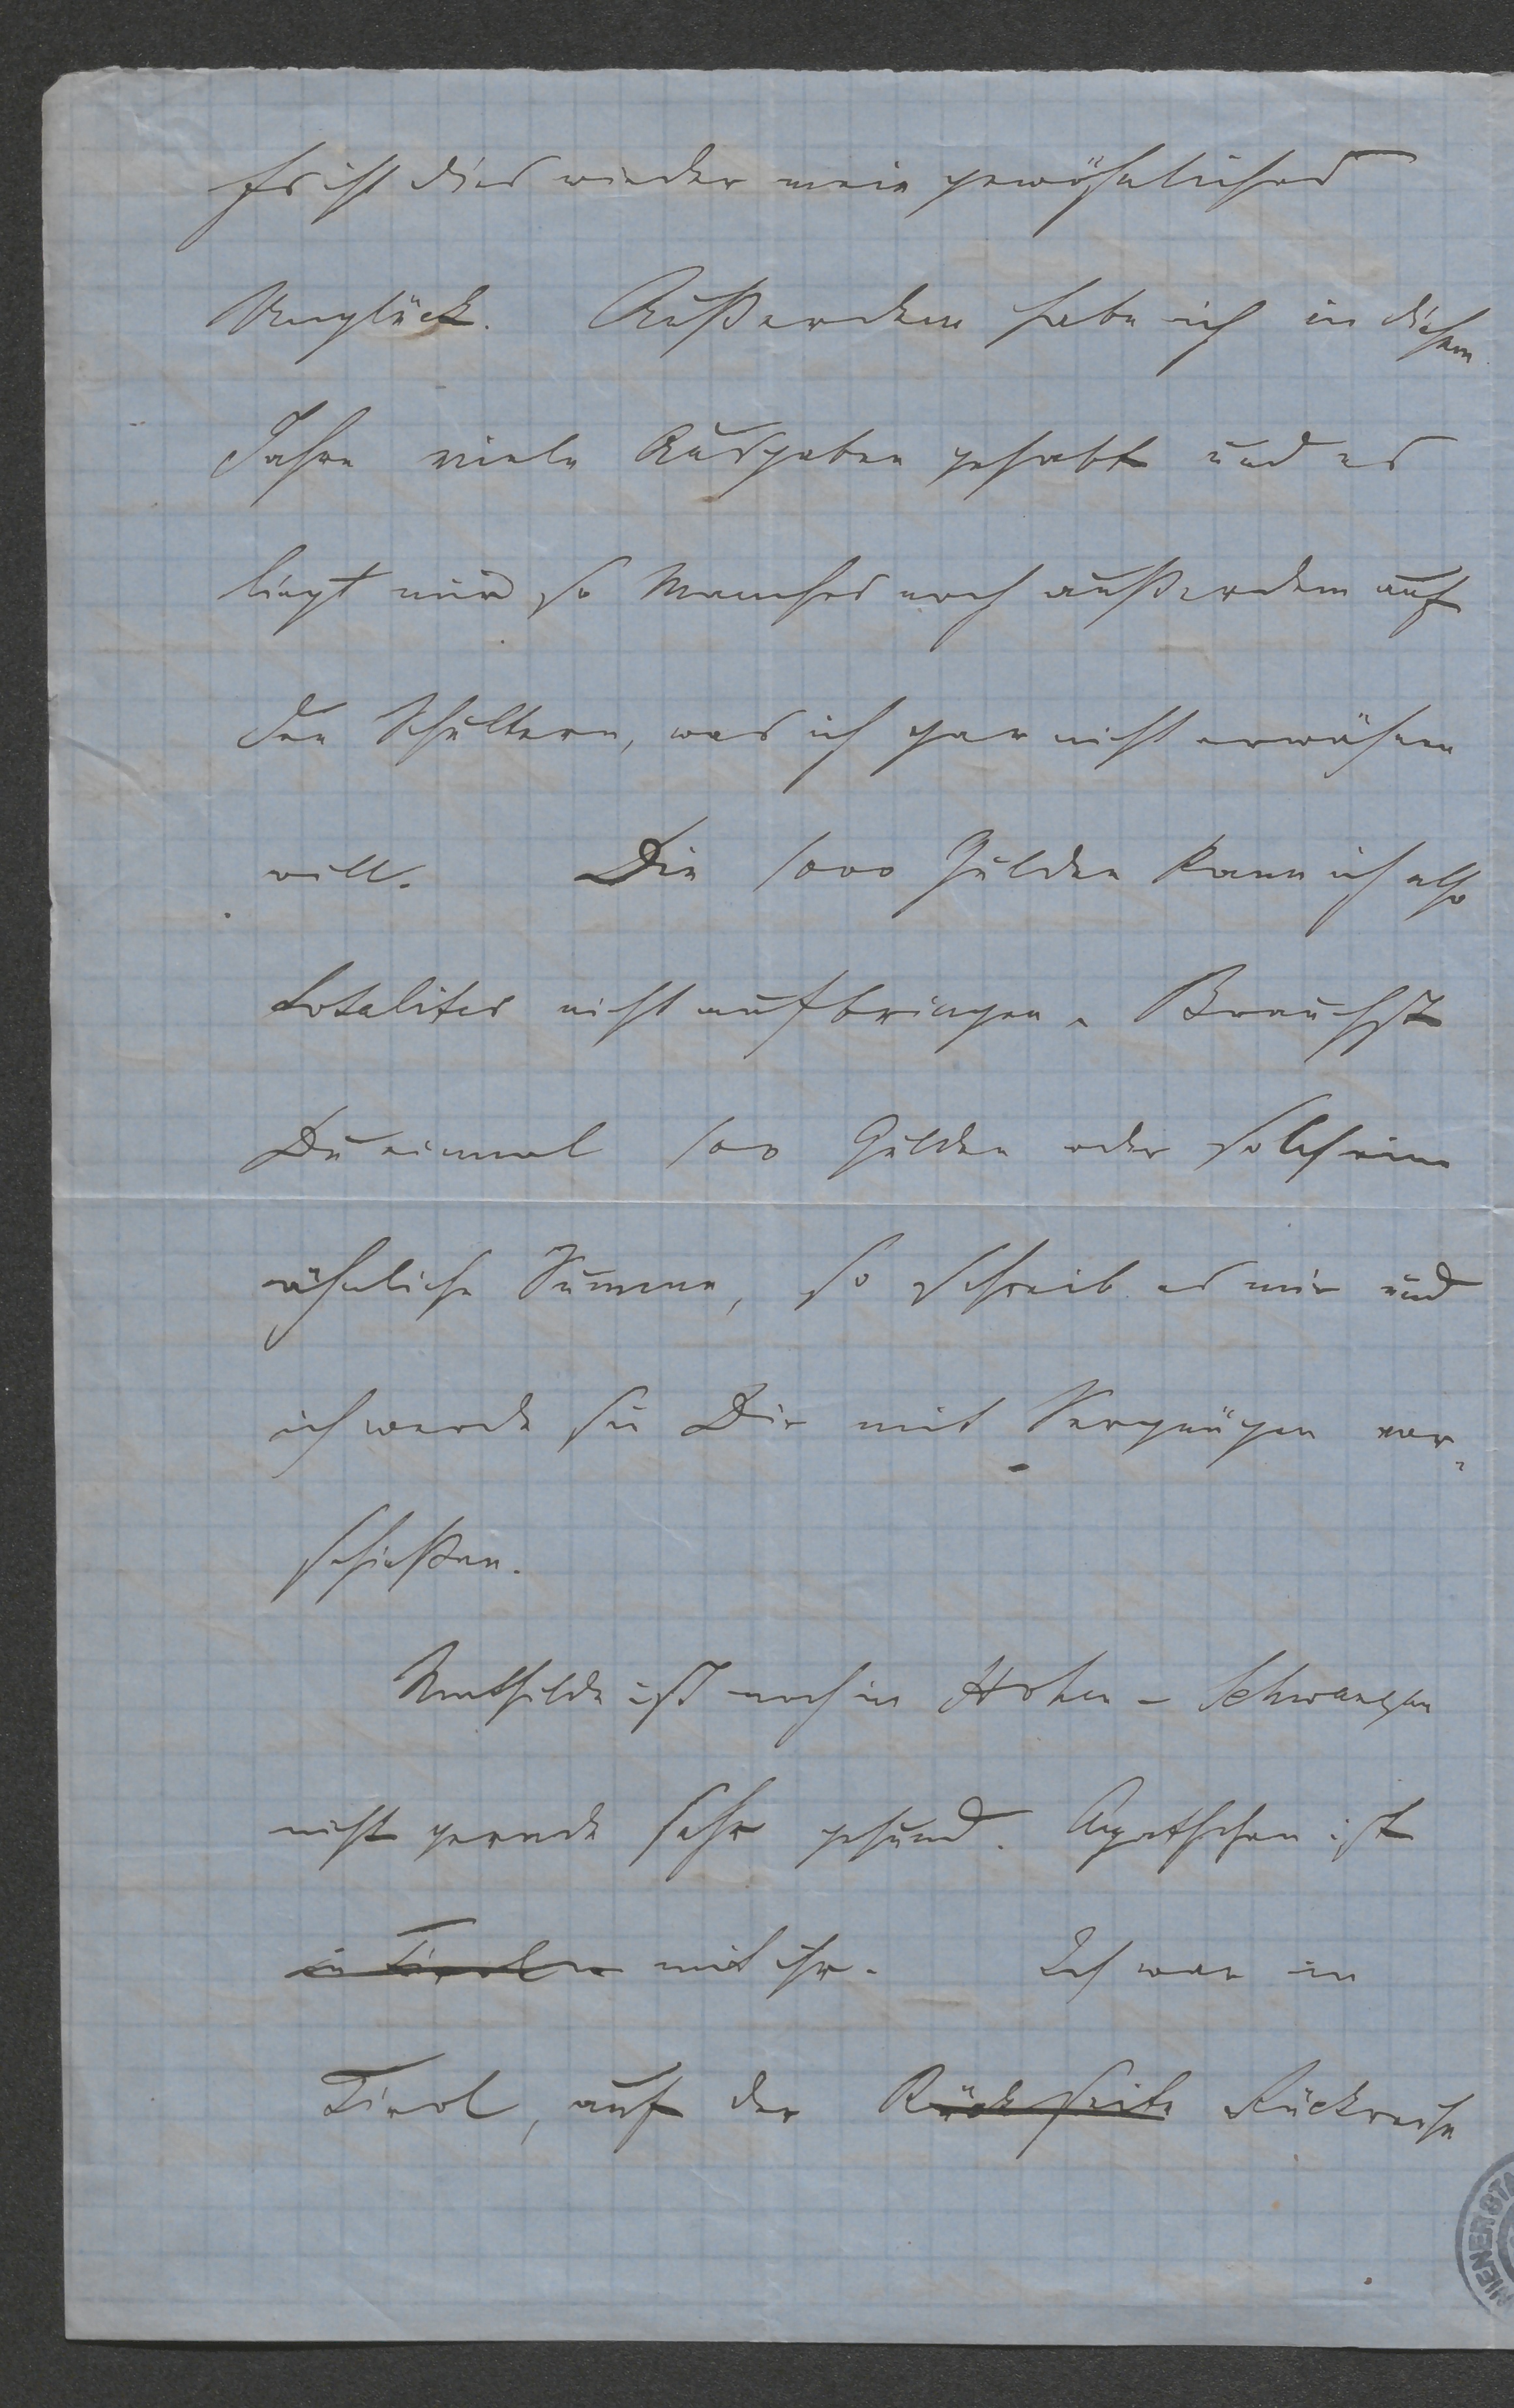 Es ist dies wieder mein gewöhnliches
Unglück. Außerdem habe ich in diesem
Jahre viele Ausgaben gehabt und es
liegt mir so Manches noch außerdem auf
den Schultern, was ich gar nicht erwähnen
will. Die 1000 Gulden kann ich also
totaliter nicht aufbringen. Brauchst
Du einmal 100 Gulden oder solch eine
ähnliche Summe, so schreib es mir und
ich werde sie Dir mit Vergnügen vor-
schießen.
Mathilde ist noch in Hohen-Schwangau
nicht gerade sehr gesund. Agathchen ist
in Tirol mit ihr. Ich war in
Tirol, auf der Rückseite Rückreise
WIENER STA